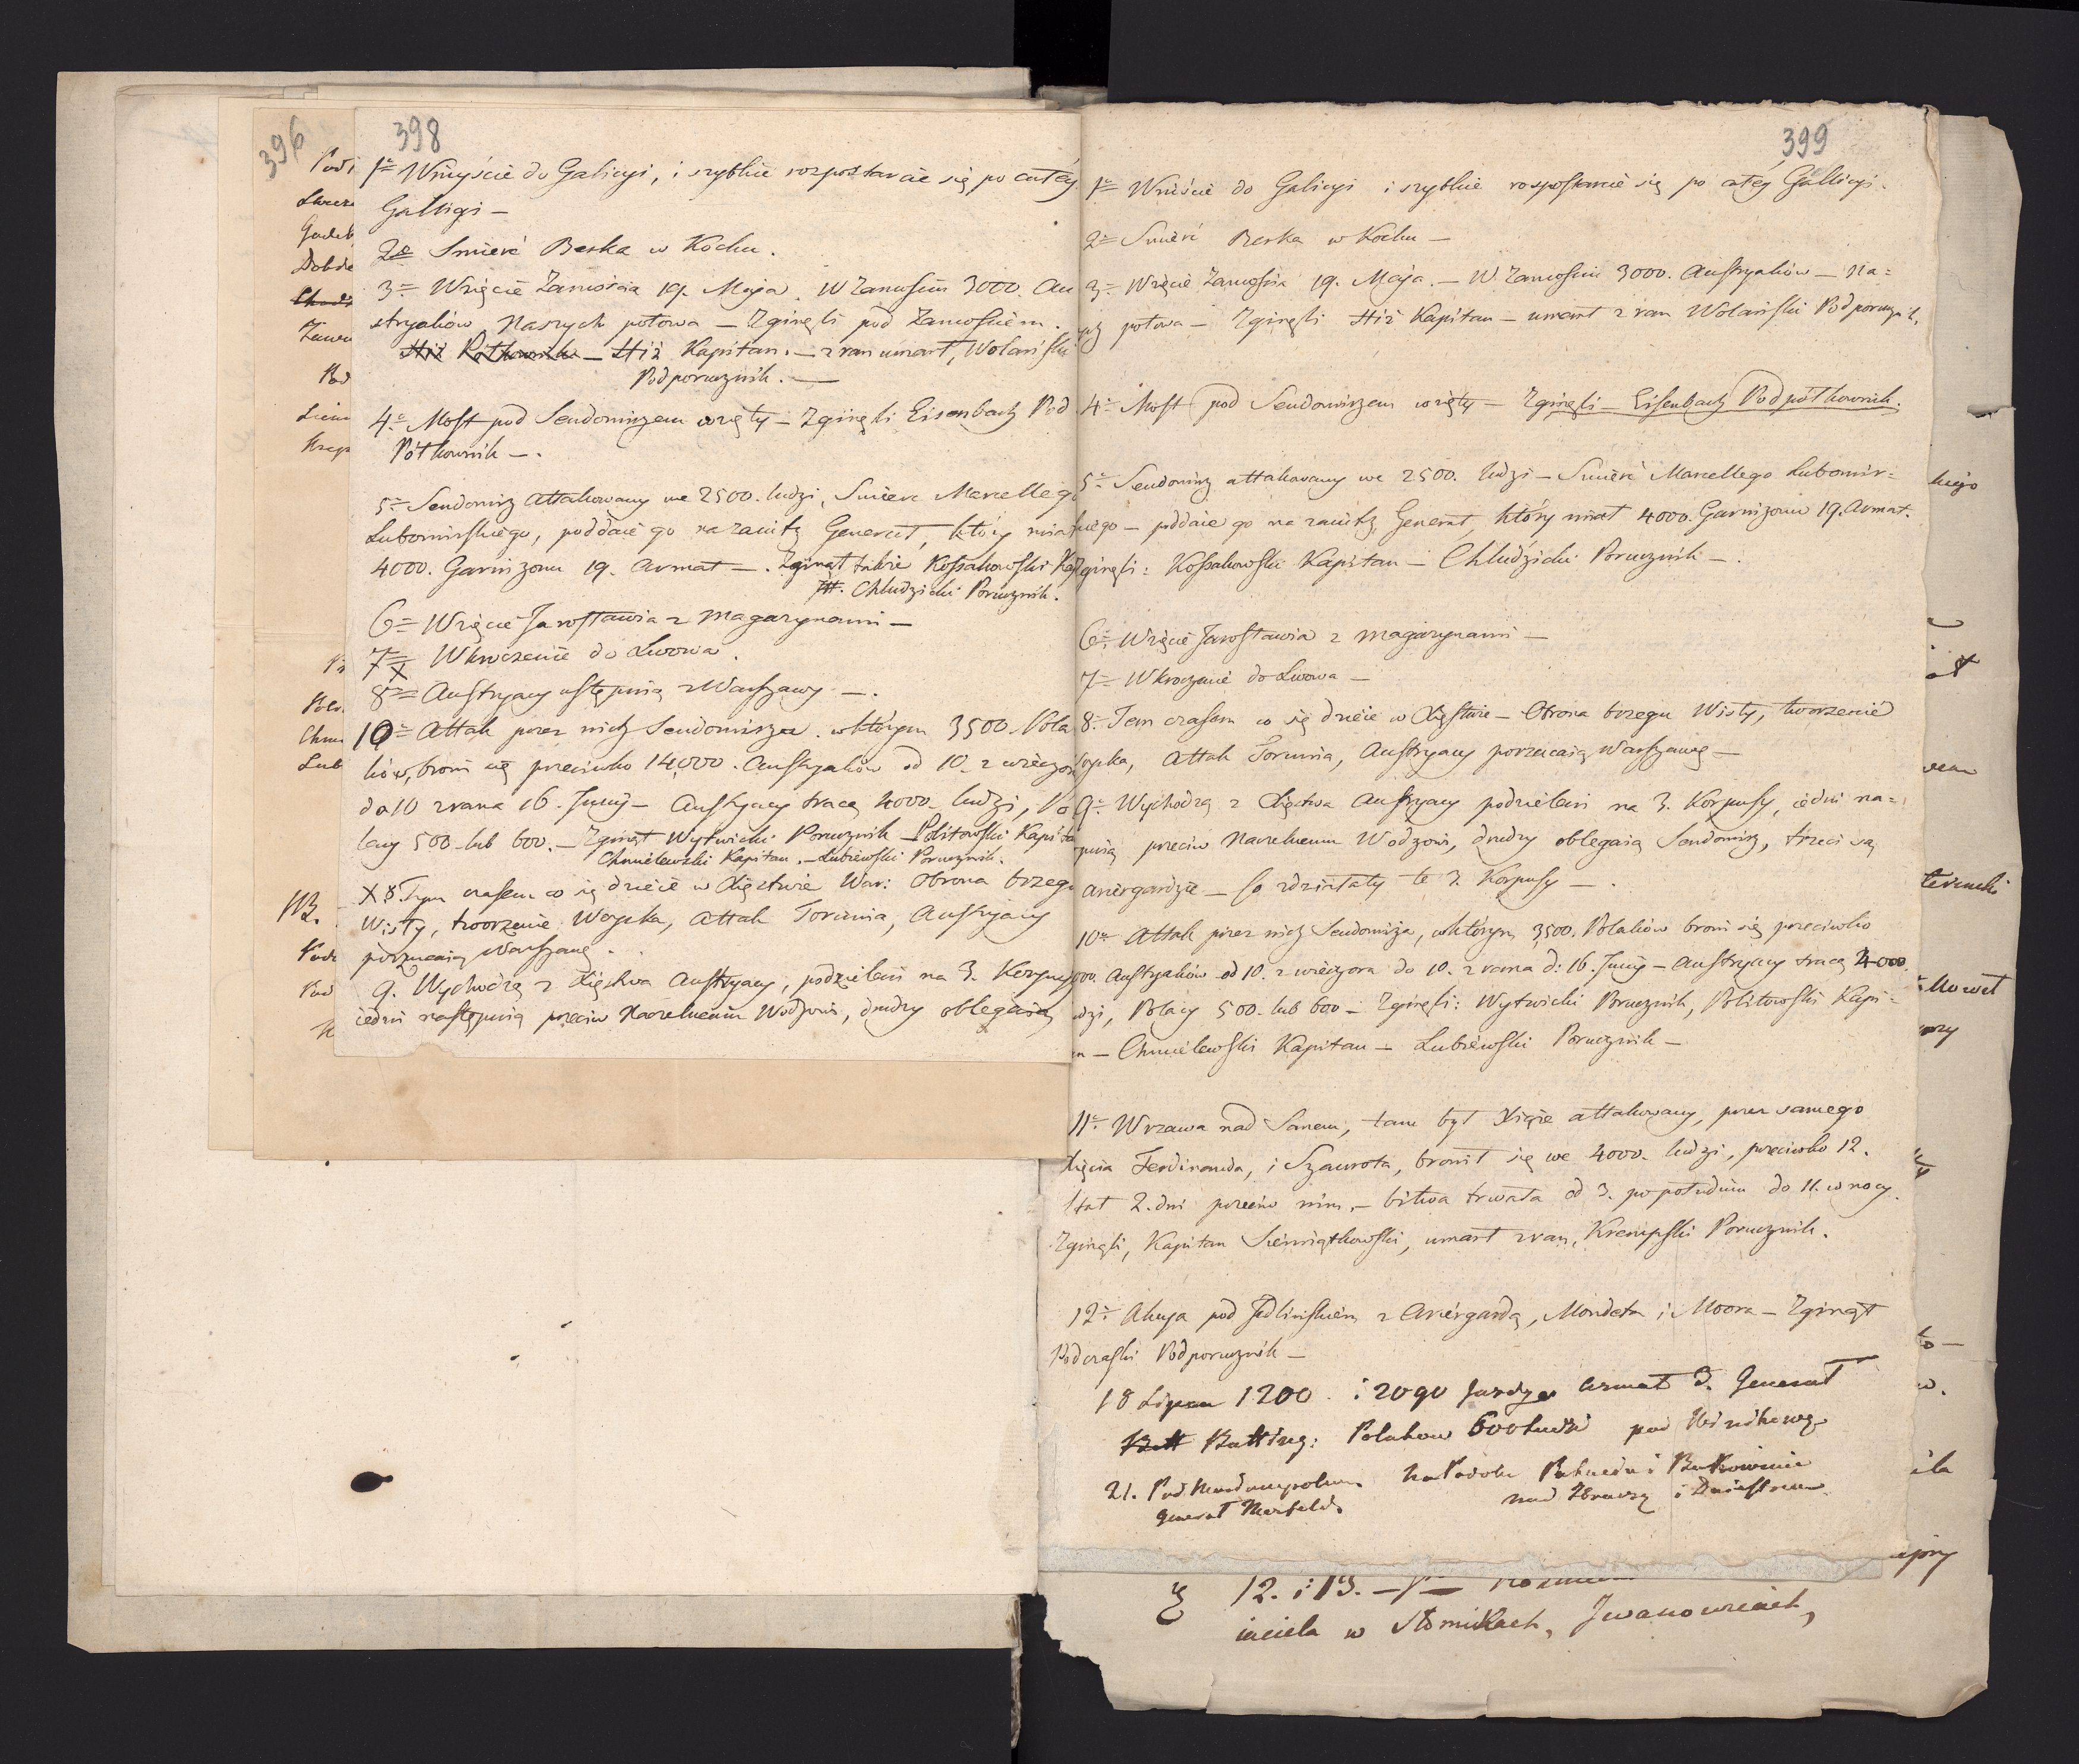 396
398
1e Wniyście do Galicyi, i szybkie rozpostarcie się po całéy
Gallicyi —
2e Smierć Berka w Kocku.
3e Wzięcie Zamościa 19. Maja. W Zamościu 3000. Au
stryaków Naszych połowa — Zginęli pod Zamościem.
Hiż Półkownik — Hiż Kapitan. — z ran umarł, Wolański
Podporucznik. —
4e Most pod Sendomirzem wzięty — Zginęli Eisenbach Pod
Półkownik —.
5e Sendomirz attakowany we 2500. ludzi, Smierc Marcellego
Lubomirskiego, poddaie go nazaiutrz Generał, który miał
4000. Garnizonu 19. Armat —. Zginął także Kossakowski Ka
Chludzicki Porucznik.
6e Wzięcie Jarosławia z magazynami —
7e X Wkroczenie do Lwowa.
8e Austryacy ustępuią z Warszawy —.
10e Attak przez nich Sendomirza. w którym 3500. Pola
ków, broni się przeciwko 14,000. Austryaków od 10. z wieczora
do 10 z rana 16. Juny — Austryacy tracą 4000. ludzi, Po
lacy 500 lub 600. — Zginął Wytwicki Porucznik — Politowski Kapita
Chmielewski Kapitan. — Lubiewski Porucznik.
X 8 Tym czasem co się dzieie w Xięstwie War: Obrona brzegu
Wisły, tworzenie Woyska, Attak Torunia, Austryacy
porzucaią Warszawę.
9. Wychodzą z Xięstwa Austryacy, podzieleni na 3. Korpusy
iedni następuią przeciw Naczelnemu Wodzowi, drudzy oblegaią
399
1e Wniście do Galicyi i szybkie rozpostarcie się po całéy Gallicyi.
2e Smierć Berka w Kocku —
3e Wzięcie Zamościa 19. Maja. — W Zamościu 3000. Austryaków — Na=
połowa — Zginęli Hiż Kapitan — umarł z ran Wolański Podporucznik.
4e Most pod Sendomirzem wzięty — Zginęli — Eisenbach Podpółkownik.
5e Sendomirz attakowany we 2500. ludzi — Smierć Marcellego Lubomir=
skiego — poddaie go na zaiutrz Generał, który miał 4000. Garnizonu 19. Armat.
Zginęli: Kossakowski Kapitan — Chludzicki Porucznik —.
6e Wzięcie Jarosławia z magazynami —
7e Wkroczenie do Lwowa —
8e Tem czasem co się dzieie w Xięstwie — Obrona brzegu Wisły, tworzenie
Woyska, Attak Torunia, Austryacy porzucaią Warszawę —
9e Wychodzą z Xięstwa Austryacy podzieleni na 3. Korpusy, iedni na=
puią przeciw Naczelnemu Wodzowi, drudzy oblegaią Sendomirz, trzeci są
Arieregardzie — Co zdziałały te 3. Korpusy —.
10e Attak przez nich Sendomirza, w którym 3,500. Polaków broni się przeciwko
000. Austryaków od 10. z wieczora do 10. z rana d: 16. Juny — Austryacy tracą 4000.
ludzi, Polacy 500. lub 600 — Zginęli: Wytwicki Porucznik, Politowski Kapi=
n — Chmielewski Kapitan — Lubiewski Porucznik —
11e Wrzawa nad Sanem, tam był Xiąże attakowany, przez samego
Xięcia Ferdinanda, i Szaurota, bronił się we 4000. ludzi, przeciwko 12.
Stał 2. dni przeciw nim, — bitwa trwała od 3. po południu do 11. w nocy.
Zginęli, Kapitan Siemiątkowski, umarł z ran, Krempski Porucznik.
12e Akcya pod Jedlińskiem z Ariergardą, Mondeta i Moora — Zginął
Podczaski Podporucznik —
18 Lipca 1200. i 20go Armat 3. Generał
Polakow 600 ludzi pod
21. Pod na Podolu i Bukowinie
Generał Merfeld nad Zbruczą i Dniestrem
12. i 13.
iaciela w Słomikach, Iwanowicach,